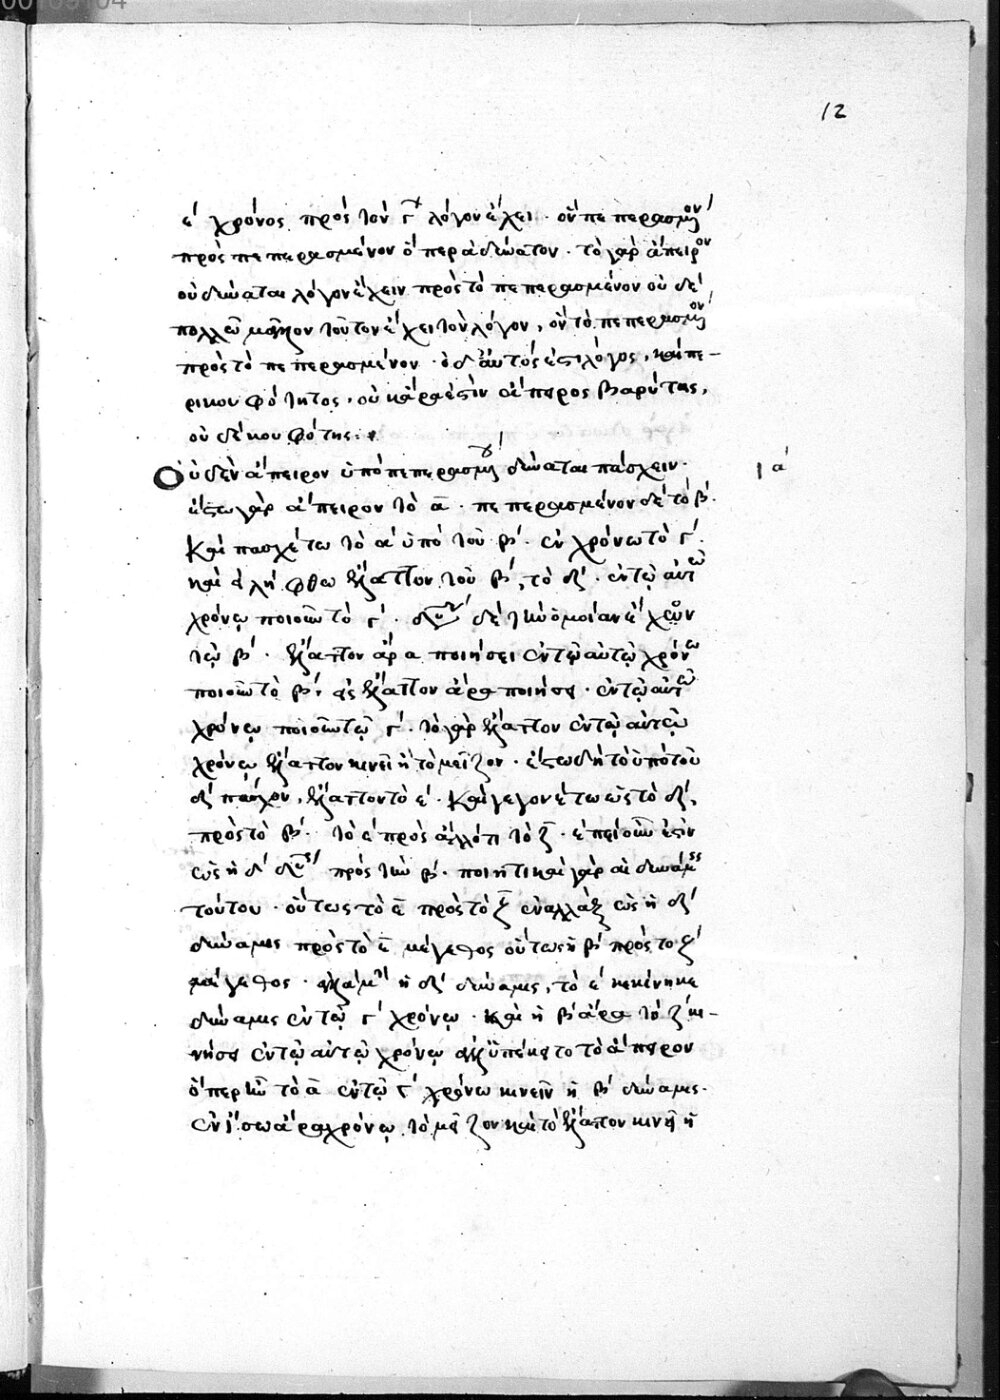 00109104
12
ε΄ χρόνος πρὸς τὸν γ΄ λόγον ἔχει · ὃν πεπερασμένον
πρὸς πεπερασμένον ὅπερ ἀδύνατον · τὸ γὰρ ἄπειρον
οὐ δύναται λόγον ἔχειν πρὸς τὸ πεπερασμένον οὐδὲ
πολλῶ μᾶλλον τοῦτον ἔχει τὸν λόγον, ὃν τὸ πεπερασμένον
πρὸς τὸ πεπερασμένον · ὁ δ' αὐτός ἐστι λόγος, καὶ πε-
ρὶ κουφότητος, οὐκ ἄρα ἐστὶν ἄπειρος βαρύτης,
οὐδὲ κουφότης:
Οὐδὲν ἄπειρον ὑπὸ πεπερασμένου δύναται πάσχειν · ια΄
ἔστω γὰρ ἄπειρον τὸ α · πεπερασμένον δὲ τὸ β΄.
Καὶ πασχέτω τὸ α ὑπὸ τοῦ β΄. ἐν χρόνω τὸ γ΄.
καὶ ἐλήφθω ἔλαττον τοῦ β΄, τὸ δ΄. ἐν τῷ αὐτῶ
χρόνῳ ποιοῦν τὸ γ΄. δύναμιν δὲ τὴν ὁμοίαν ἔχειν
τῷ β΄. ἔλαττον ἄρα ποιήσει ἐν τῷ αὐτῷ χρόνω
ποιοῦν τὸ β΄, ἔλαττον ἄρα ποιήσει · ἐν τῷ αὐτῶ
χρόνῳ ποιοῦν τῷ γ΄. τὸ γὰρ ἔλαττον ἐν τῷ αὐτῷ
χρόνῳ ἔλαττον κινεῖ ἢ τὸ μεῖζον · ἔστω δὴ τὸ ὑπὸ τοῦ
δ΄ πάσχον, ἔλαττον τὸ ε΄. Καὶ γεγονέτω ὡς τὸ δ΄,
πρὸς τὸ β΄. τὸ ε΄ πρὸς ἄλλό τι τὸ ζ · ἐπεὶ οὖν ἐστὶν
ὡς ἡ δ΄ δύναμις πρὸς τὴν β΄. ποιητικαὶ γὰρ αἱ δυνάμεις
τούτου · οὕτως τὸ ε πρὸς τὸ ζ ἐναλλὰξ ὡς ἡ δ΄
δύναμις πρὸς τὸ ε μέγεθος οὕτως ἡ β΄ πρὸς τὸ ζ΄
μέγεθος · ἀλλὰ μὴν ἡ δ΄ δύναμις, τὸ ε΄ κεκίνηκε
δύναμις ἐν τῷ γ΄ χρόνῳ · Καὶ ἡ β΄ ἄρα τὸ ζ κι-
νήσει ἐν τῷ αὐτῷ χρόνῳ ἀλλ' ὑπέκειτο τὸ ἄπειρον
ὅπερ ἦν τὸ α ἐν τῷ γ΄ χρόνω κινεῖν ἡ β΄ δύναμις.
ἐν ἴσω ἄρα χρόνῳ τὸ μεῖζον καὶ τὸ ἔλαττον κινεῖ ἡ